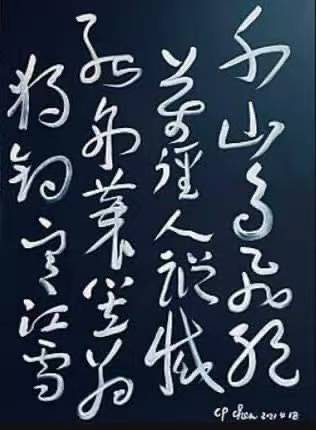 千山鳥飛絕
萬徑人蹤滅
孤舟蓑笠翁
獨釣寒江雪
CP Chen 2021 4 18